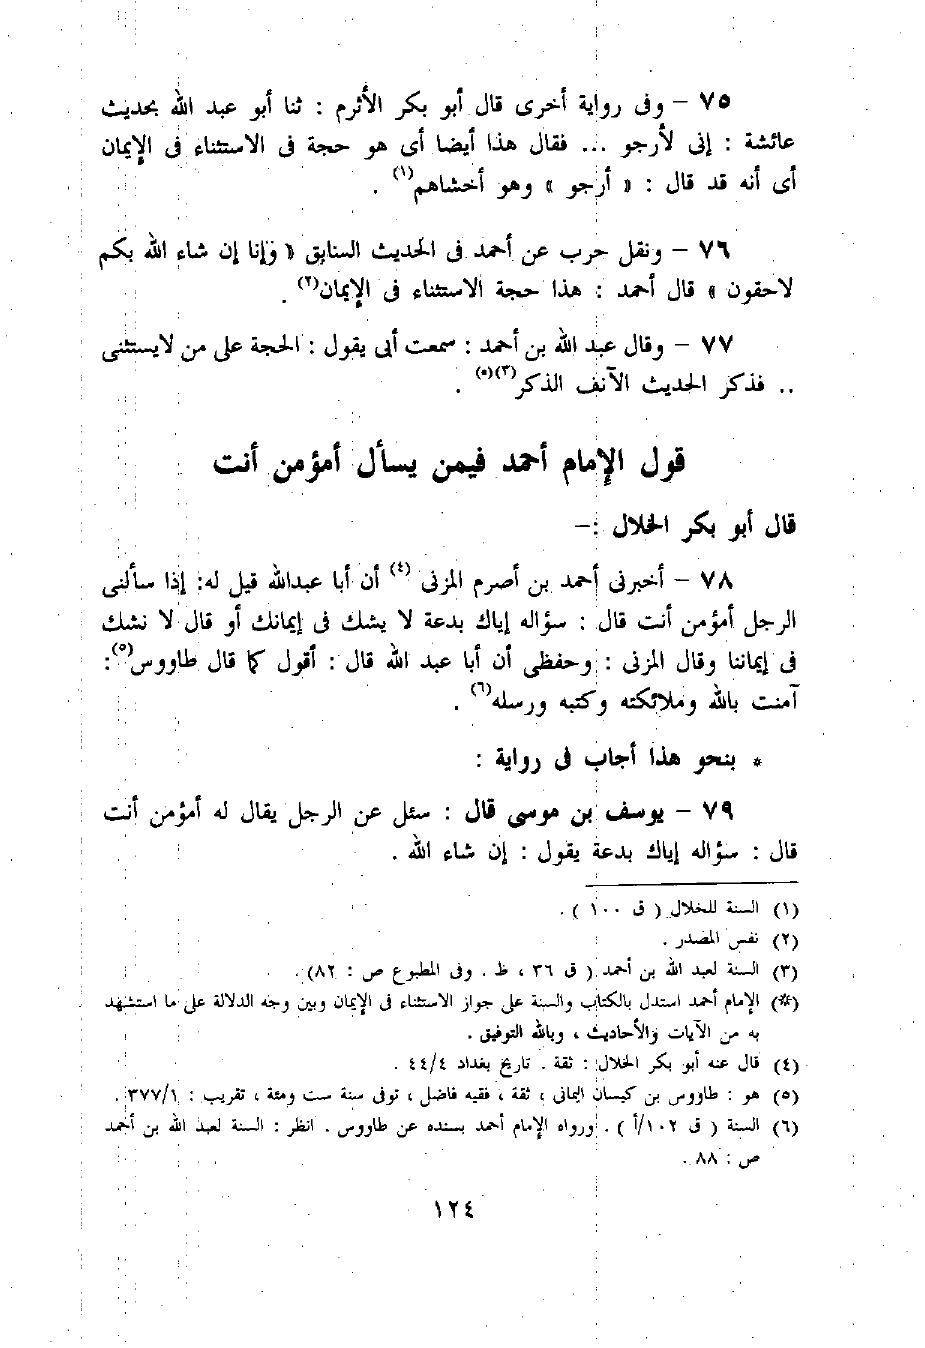 ٧٥ – وفى رواية أخرى قال أبو بكر الأثرم : ثنا أبو عبد الله بحديث
عائشة : إنى لأرجو ... فقال هذا أيضا أى هو حجة فى الاستثناء فى الإيمان
أى أنه قد قال : « أرجو » وهو أخشاهم(١) .
٧٦ – ونقل حرب عن أحمد فى الحديث السابق « وإنا إن شاء الله بكم
لاحقون » قال أحمد : هذا حجة الاستثناء فى الإيمان(٢) .
٧٧ – وقال عبد الله بن أحمد : سمعت أبى يقول : الحجة على من لايستثنى
.. فذكر الحديث الآنف الذكر(٣)(*) .
قول الإمام أحمد فيمن يسأل أمؤمن أنت
قال أبو بكر الخلال :–
٧٨ – أخبرنى أحمد بن أصرم المزنى (٤) أن أبا عبدالله قيل له: إذا سألنى
الرجل أمؤمن أنت قال : سؤاله إياك بدعة لا يشك فى إيمانك أو قال لا نشك
فى إيماننا وقال المزنى : وحفظى أن أبا عبد الله قال : أقول كما قال طاووس(٥):
آمنت بالله وملائكته وكتبه ورسله(٦) .
* بنحو هذا أجاب فى رواية :
٧٩ – يوسف بن موسى قال : سئل عن الرجل يقال له أمؤمن أنت
قال : سؤاله إياك بدعة يقول : إن شاء الله .
(١) السنة للخلال ( ق ١٠٠ ) .
(٢) نفس المصدر .
(٣) السنة لعبد الله بن أحمد ( ق ٣٦ ، ظ . وفى المطبوع ص : ٨٢) .
(*) الإمام أحمد استدل بالكتاب والسنة على جواز الاستثناء فى الإيمان وبين وجه الدلالة على ما استشهد
به من الآيات والأحاديث ، وبالله التوفيق .
(٤) قال عنه أبو بكر الخلال : ثقة . تاريخ بغداد ٤/٤٤ .
(٥) هو : طاووس بن كيسان اليمانى ، ثقة ، فقيه فاضل ، توفى سنة ست ومئة ، تقريب : ٣٧٧/١ .
(٦) السنة ( ق ١٠٢/أ ) . ورواه الإمام أحمد بسنده عن طاووس . انظر : السنة لعبد الله بن أحمد
ص : ٨٨ .
١٢٤